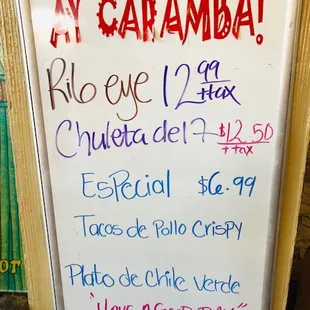 AY CARAMBA!
Rib eye 12.99 +tax
Chuleta de 17 $12.50 +tax
Especial $6.99
Tacos de Pollo Crispy
Plato de Chile Verde
"HAVE A GOOD DAY"
or